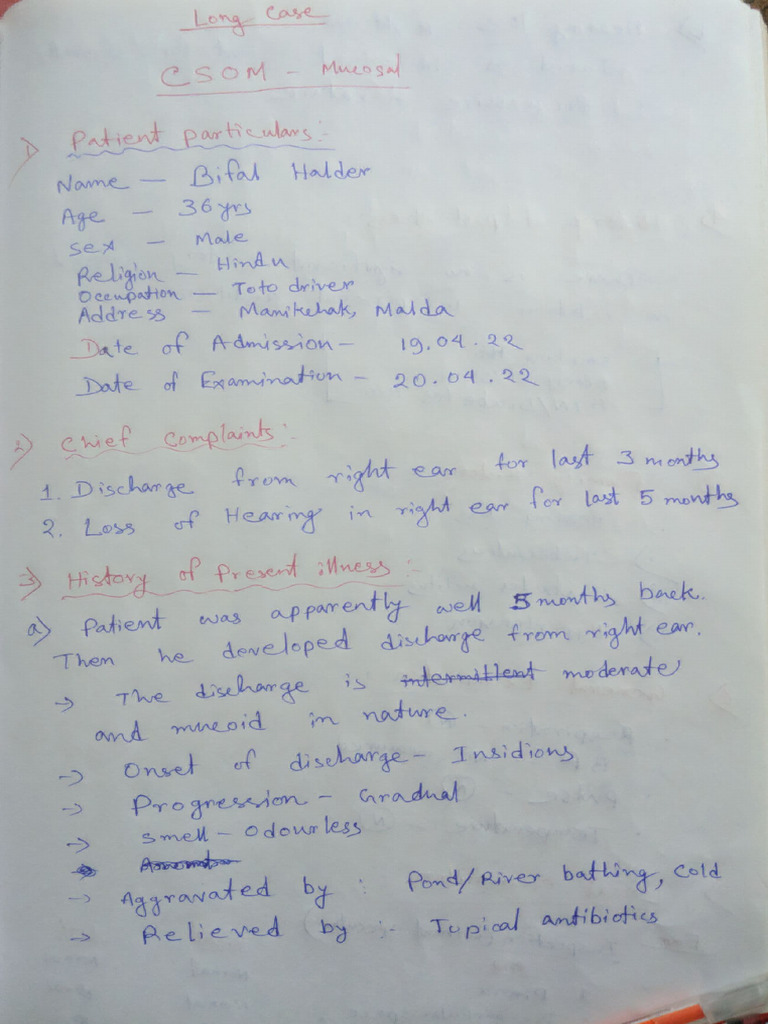 Long Case
CSOM - Mucosal
1) Patient particulars:-
Name - Bifal Halder
Age - 36 yrs
Sex - Male
Religion - Hindu
Occupation - Toto driver
Address - Manikchak, Malda
Date of Admission - 19.04.22
Date of Examination - 20.04.22
2) Chief Complaints:-
1. Discharge from right ear for last 3 months
2. Loss of Hearing in right ear for last 5 months
3) History of Present illness:-
a) Patient was apparently well 5 months back.
Then he developed discharge from right ear.
→ The discharge is intermittent moderate
and mucoid in nature.
→ Onset of discharge - Insidious
→ Progression - Gradual
→ Smell - Odourless
→ Aggravated by : Pond/River bathing, Cold
→ Relieved by :- Topical antibiotics